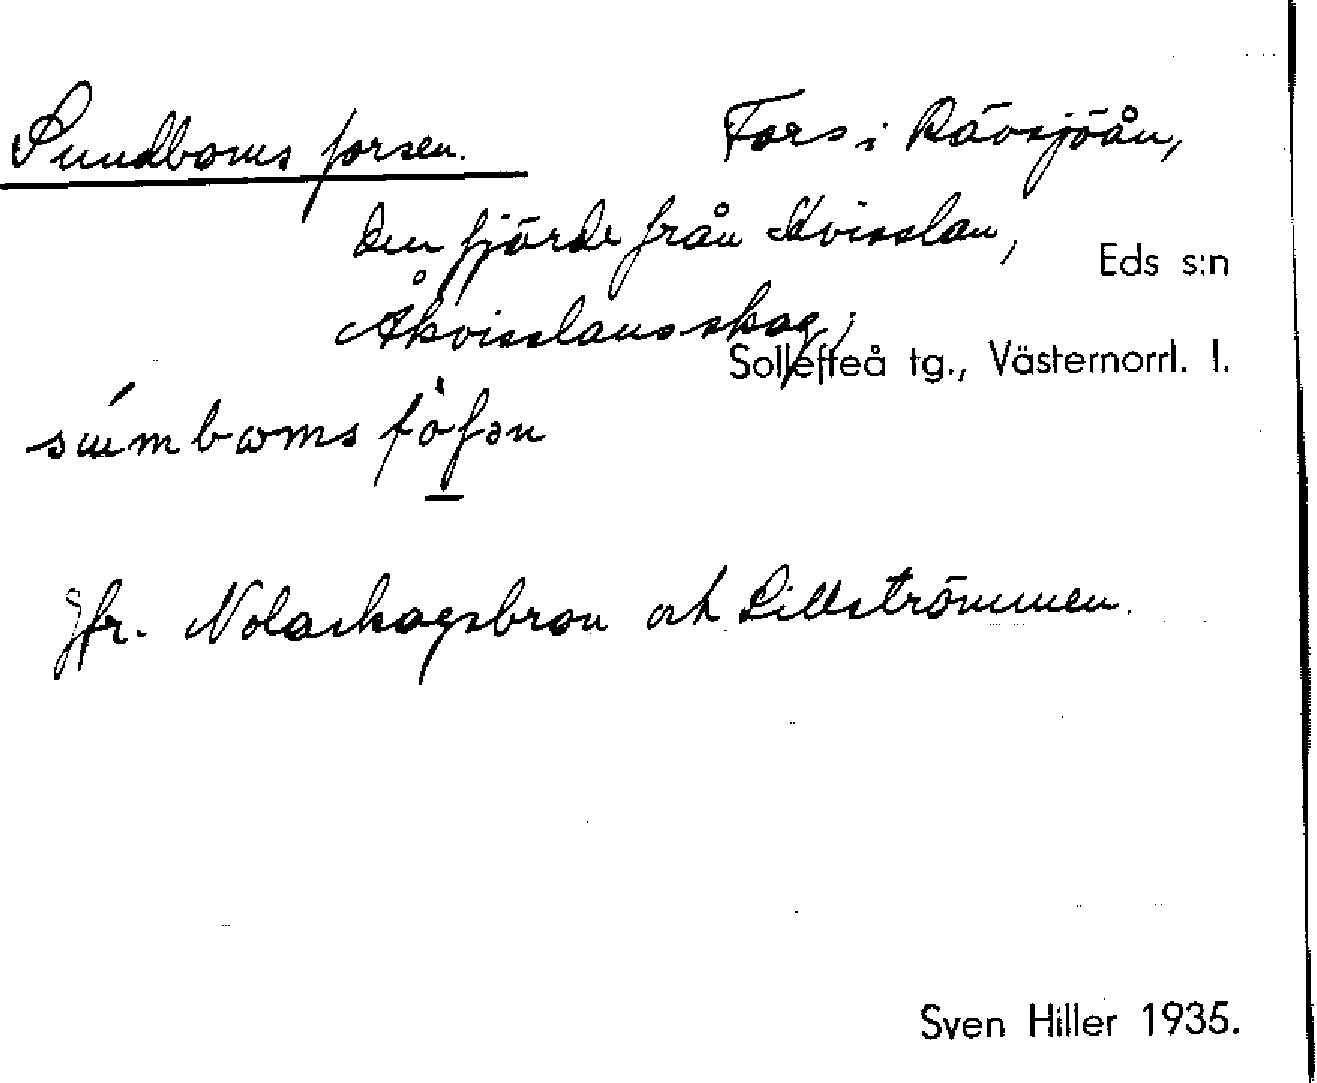 Sundboms forsen. Fors i Rävsjöån,
den fjärde från Kvisslan,
Eds s:n
Åkvisslans skog;
Sollefteå tg., Västernorrl. l.
Jfr. Nolaskogsbron och Lillströmmen.
Sven Hiller 1935.